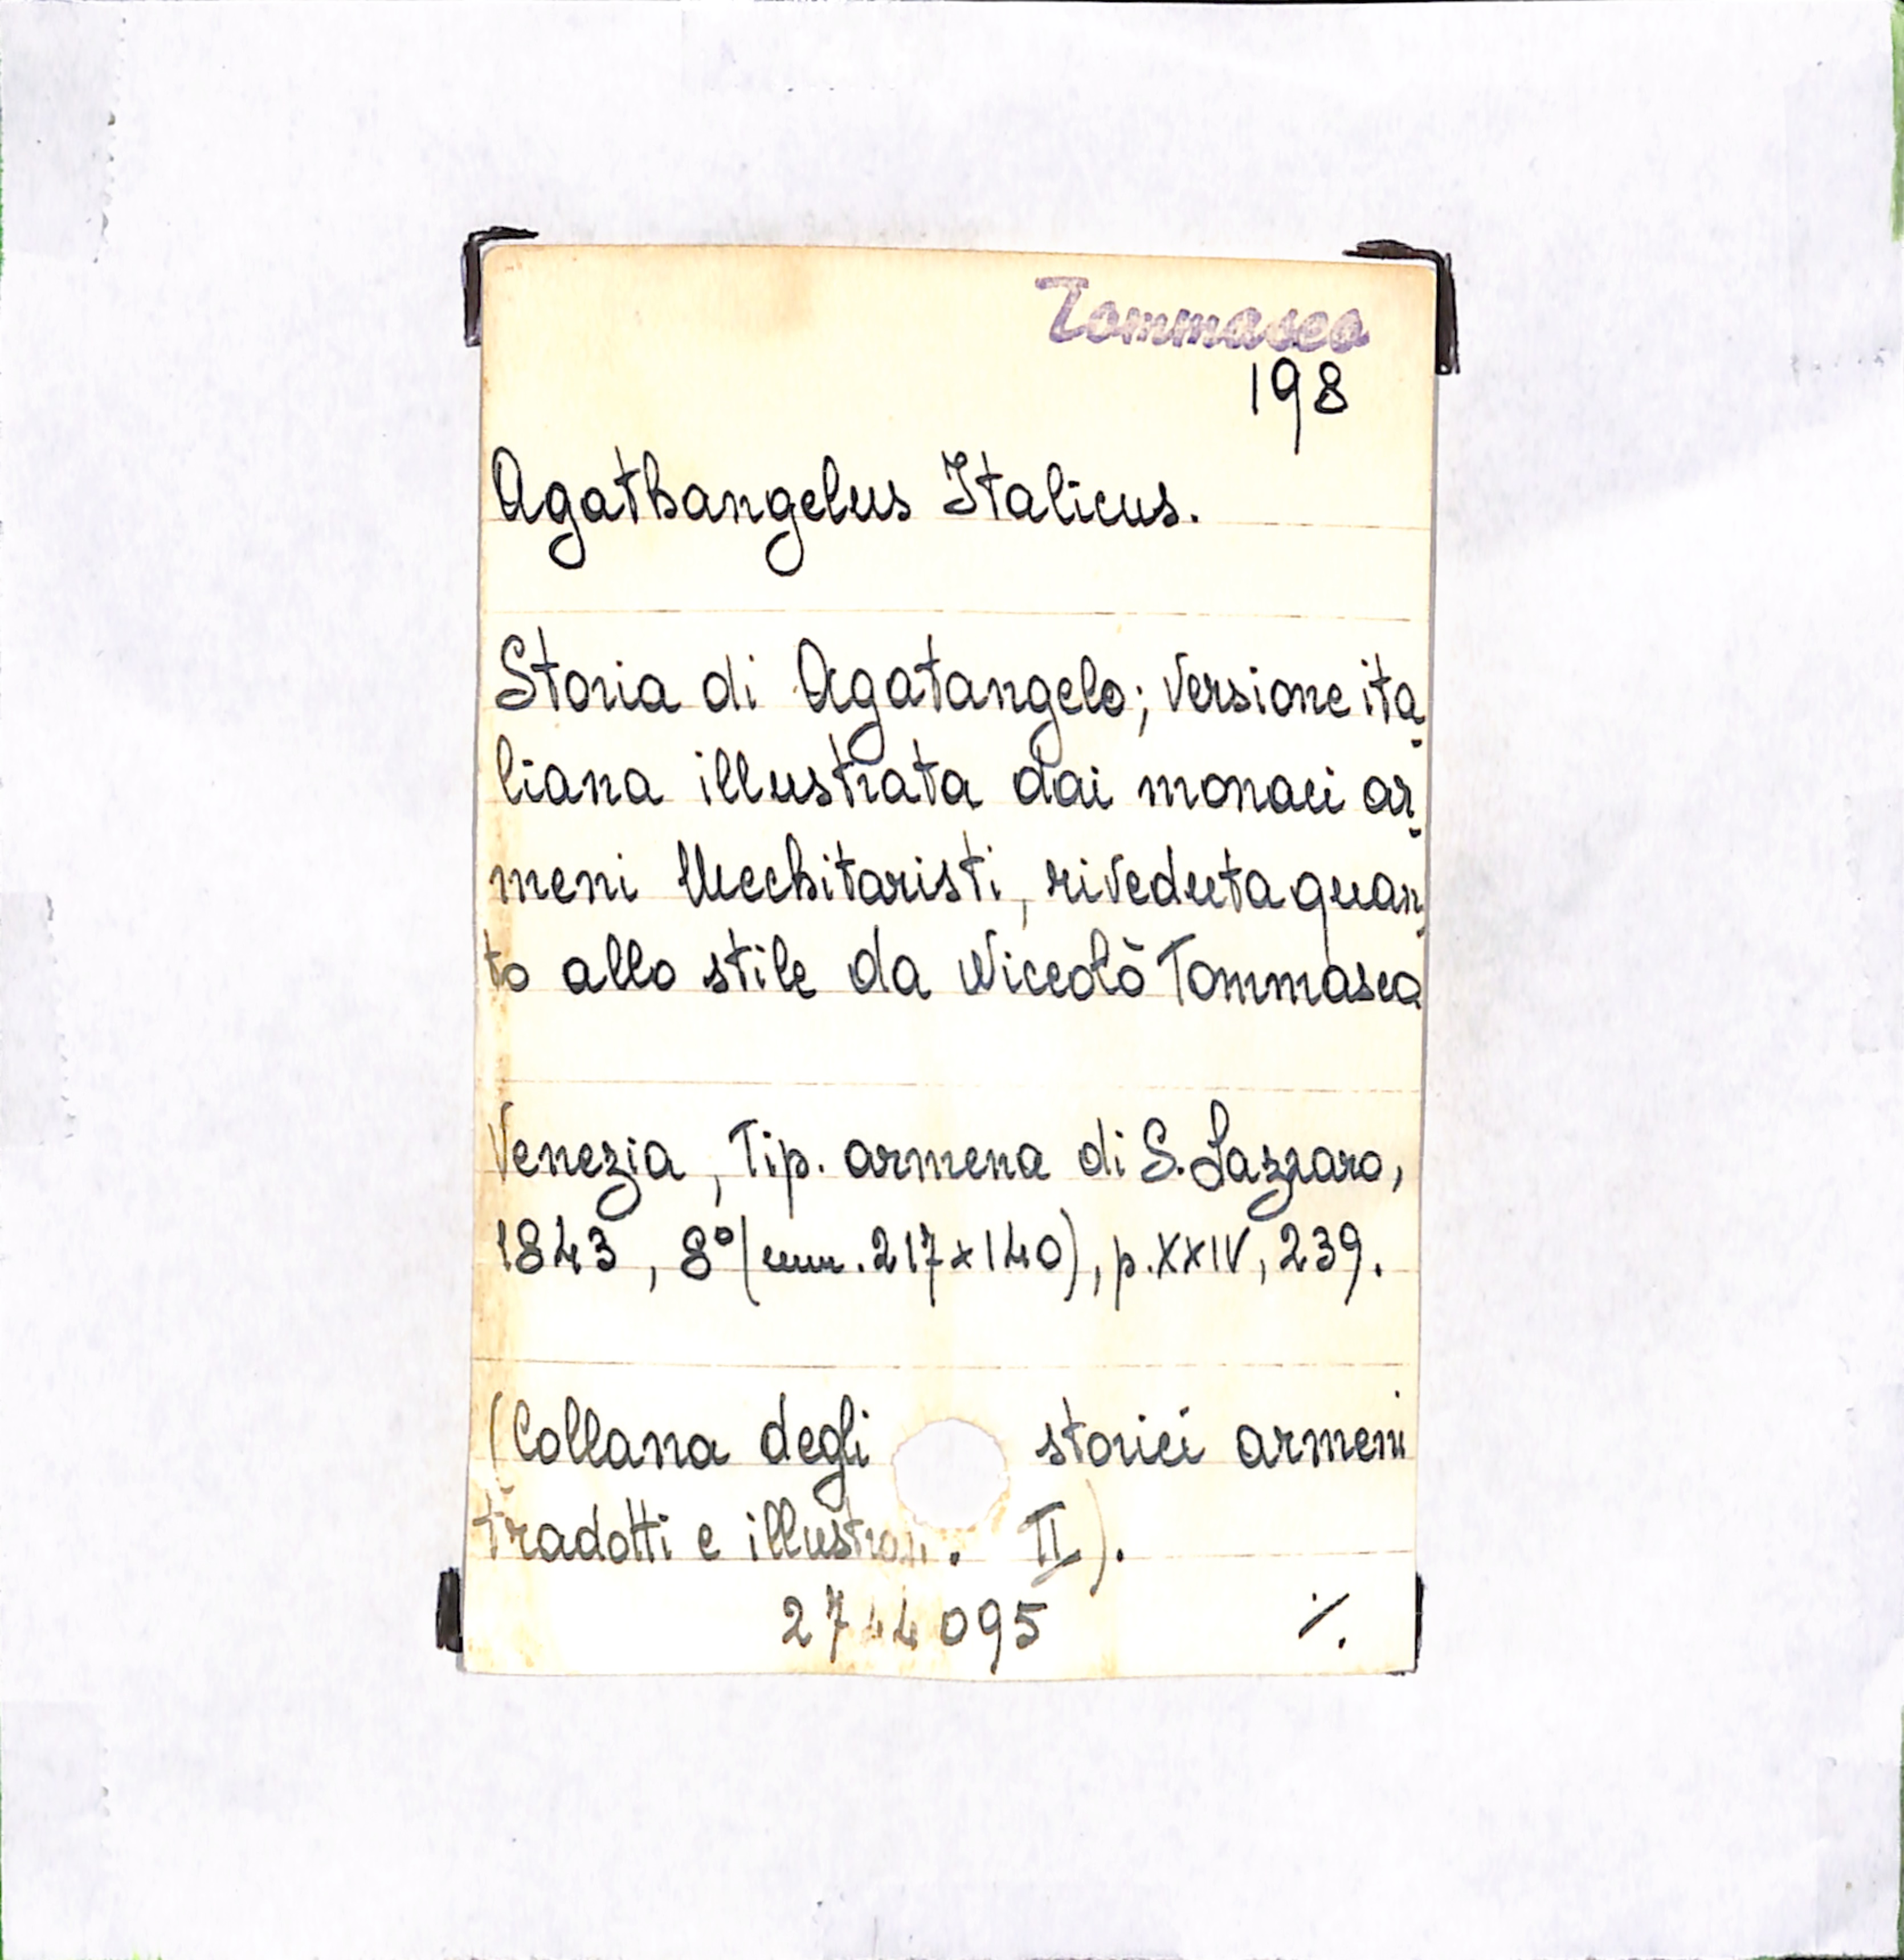 Tommaseo
198
Agathangelus Italicus.
Storia di Agatangelo; versione ita-
liana illustrata dai monaci ar-
meni Mechitaristi, riveduta quan-
to allo stile da Niccolò Tommaseo
Venezia, Tip. armena di S. Lazzaro,
1843, 8° (mm. 217x140), p. XXIV, 239.
(Collana degli storici armeni
tradotti e illustrati. II).
2744095 ./.